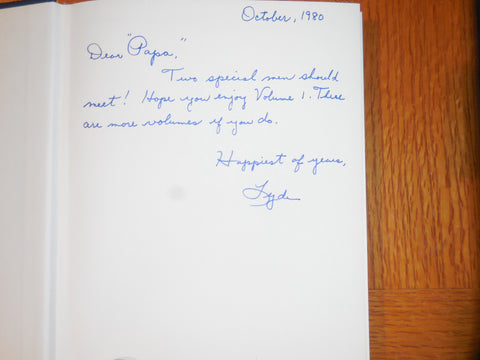 October, 1980
Dear "Papa,"
Two special men should
meet! Hope you enjoy Volume 1. There
are more volumes if you do.
Happiest of years,